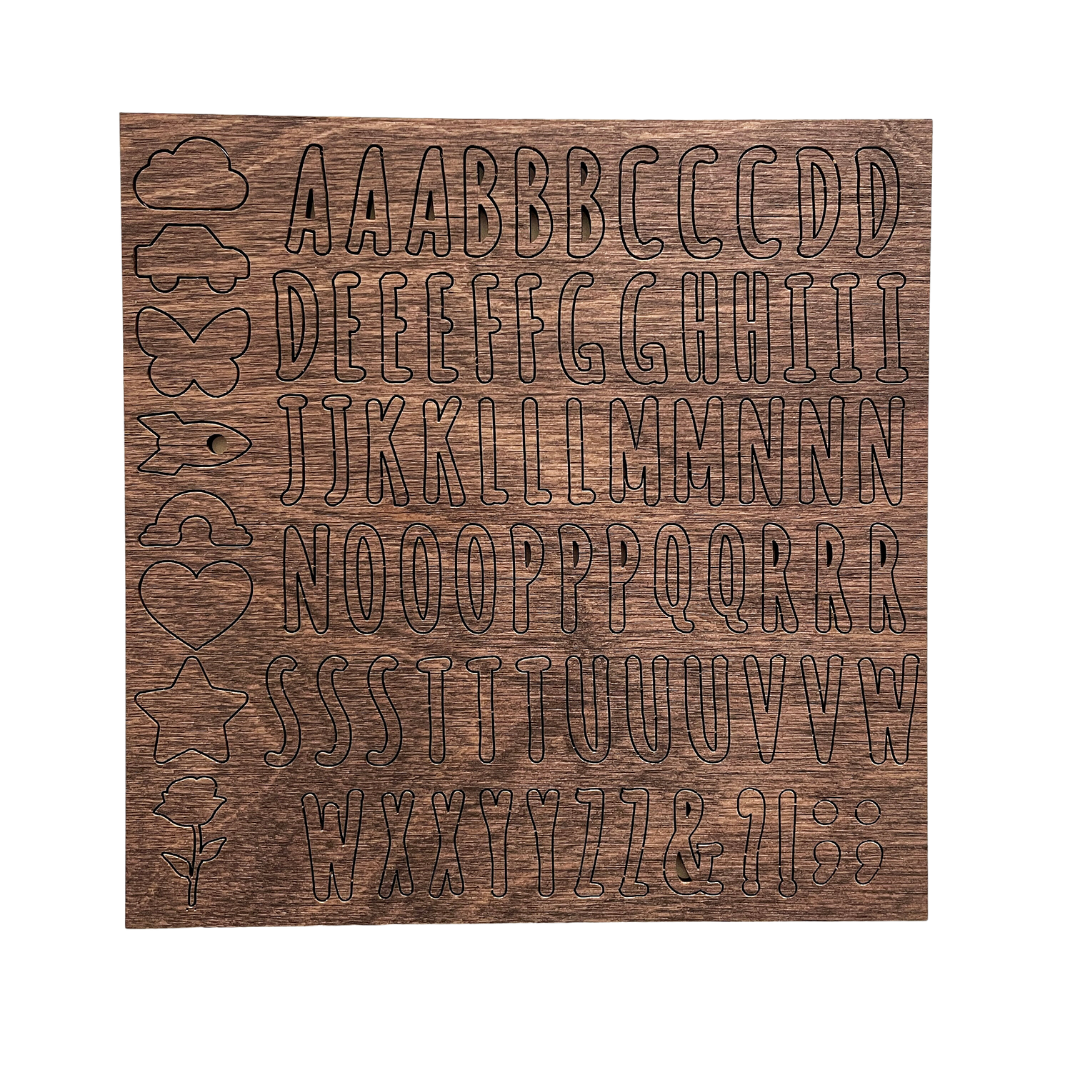 AAABBBCCCDD
DEEEFFGGHHIII
JJKKLLLMMNNN
NOOOPPPQQRRR
SSSTTTUUUVVW
WXXYYZZ&?!;;